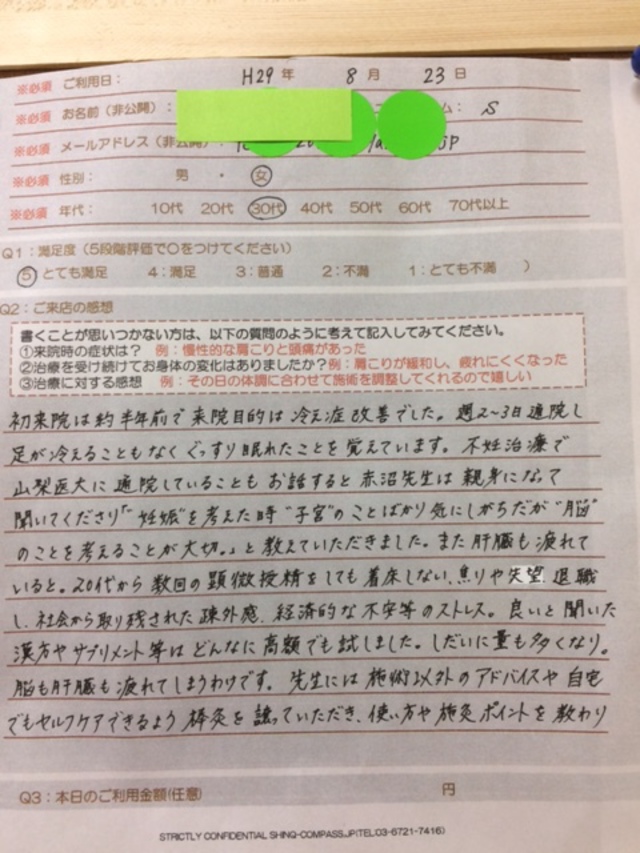 ※必須 ご利用日: H29年 8月 23日
※必須 お名前(非公開): ム: S
※必須 メールアドレス(非公開):
※必須 性別: 男 ・ 女
※必須 年代: 10代 20代 30代 40代 50代 60代 70代以上
Q1:満足度(5段階評価で○をつけてください)
5:とても満足 4:満足 3:普通 2:不満 1:とても不満 )
Q2:ご来店の感想
書くことが思いつかない方は、以下の質問のように考えて記入してみてください。
①来院時の症状は? 例:慢性的な肩こりと頭痛があった
②治療を受け続けてお身体の変化はありましたか?例:肩こりが緩和し、疲れにくくなった
③治療に対する感想 例:その日の体調に合わせて施術を調整してくれるので嬉しい
初来院は約半年前で来院目的は冷え症改善でした。週2~3日通院し
足が冷えることもなくぐっすり眠れたことを覚えています。不妊治療で
山梨医大に通院していることもお話すると赤沼先生は親身になって
聞いてくださり「"妊娠"を考えた時"子宮"のことばかり気にしがちだが"脳"
のことを考えることが大切。」と教えていただきました。また肝臓も疲れて
いると。20代から数回の顕微授精をしても着床しない、焦りや失望、退職
し、社会から取り残された疎外感、経済的な不安等のストレス。良いと聞いた
漢方やサプリメント等はどんなに高額でも試しました。しだいに量も多くなり。
脳も肝臓も疲れてしまうわけです。先生には施術以外のアドバイスや自宅
でもセルフケアできるよう棒灸を譲っていただき、使い方や施灸ポイントを教わり
Q3:本日のご利用金額(任意) 円
STRICTLY CONFIDENTIAL SHINQ-COMPASS.JP(TEL:03-6721-7416)